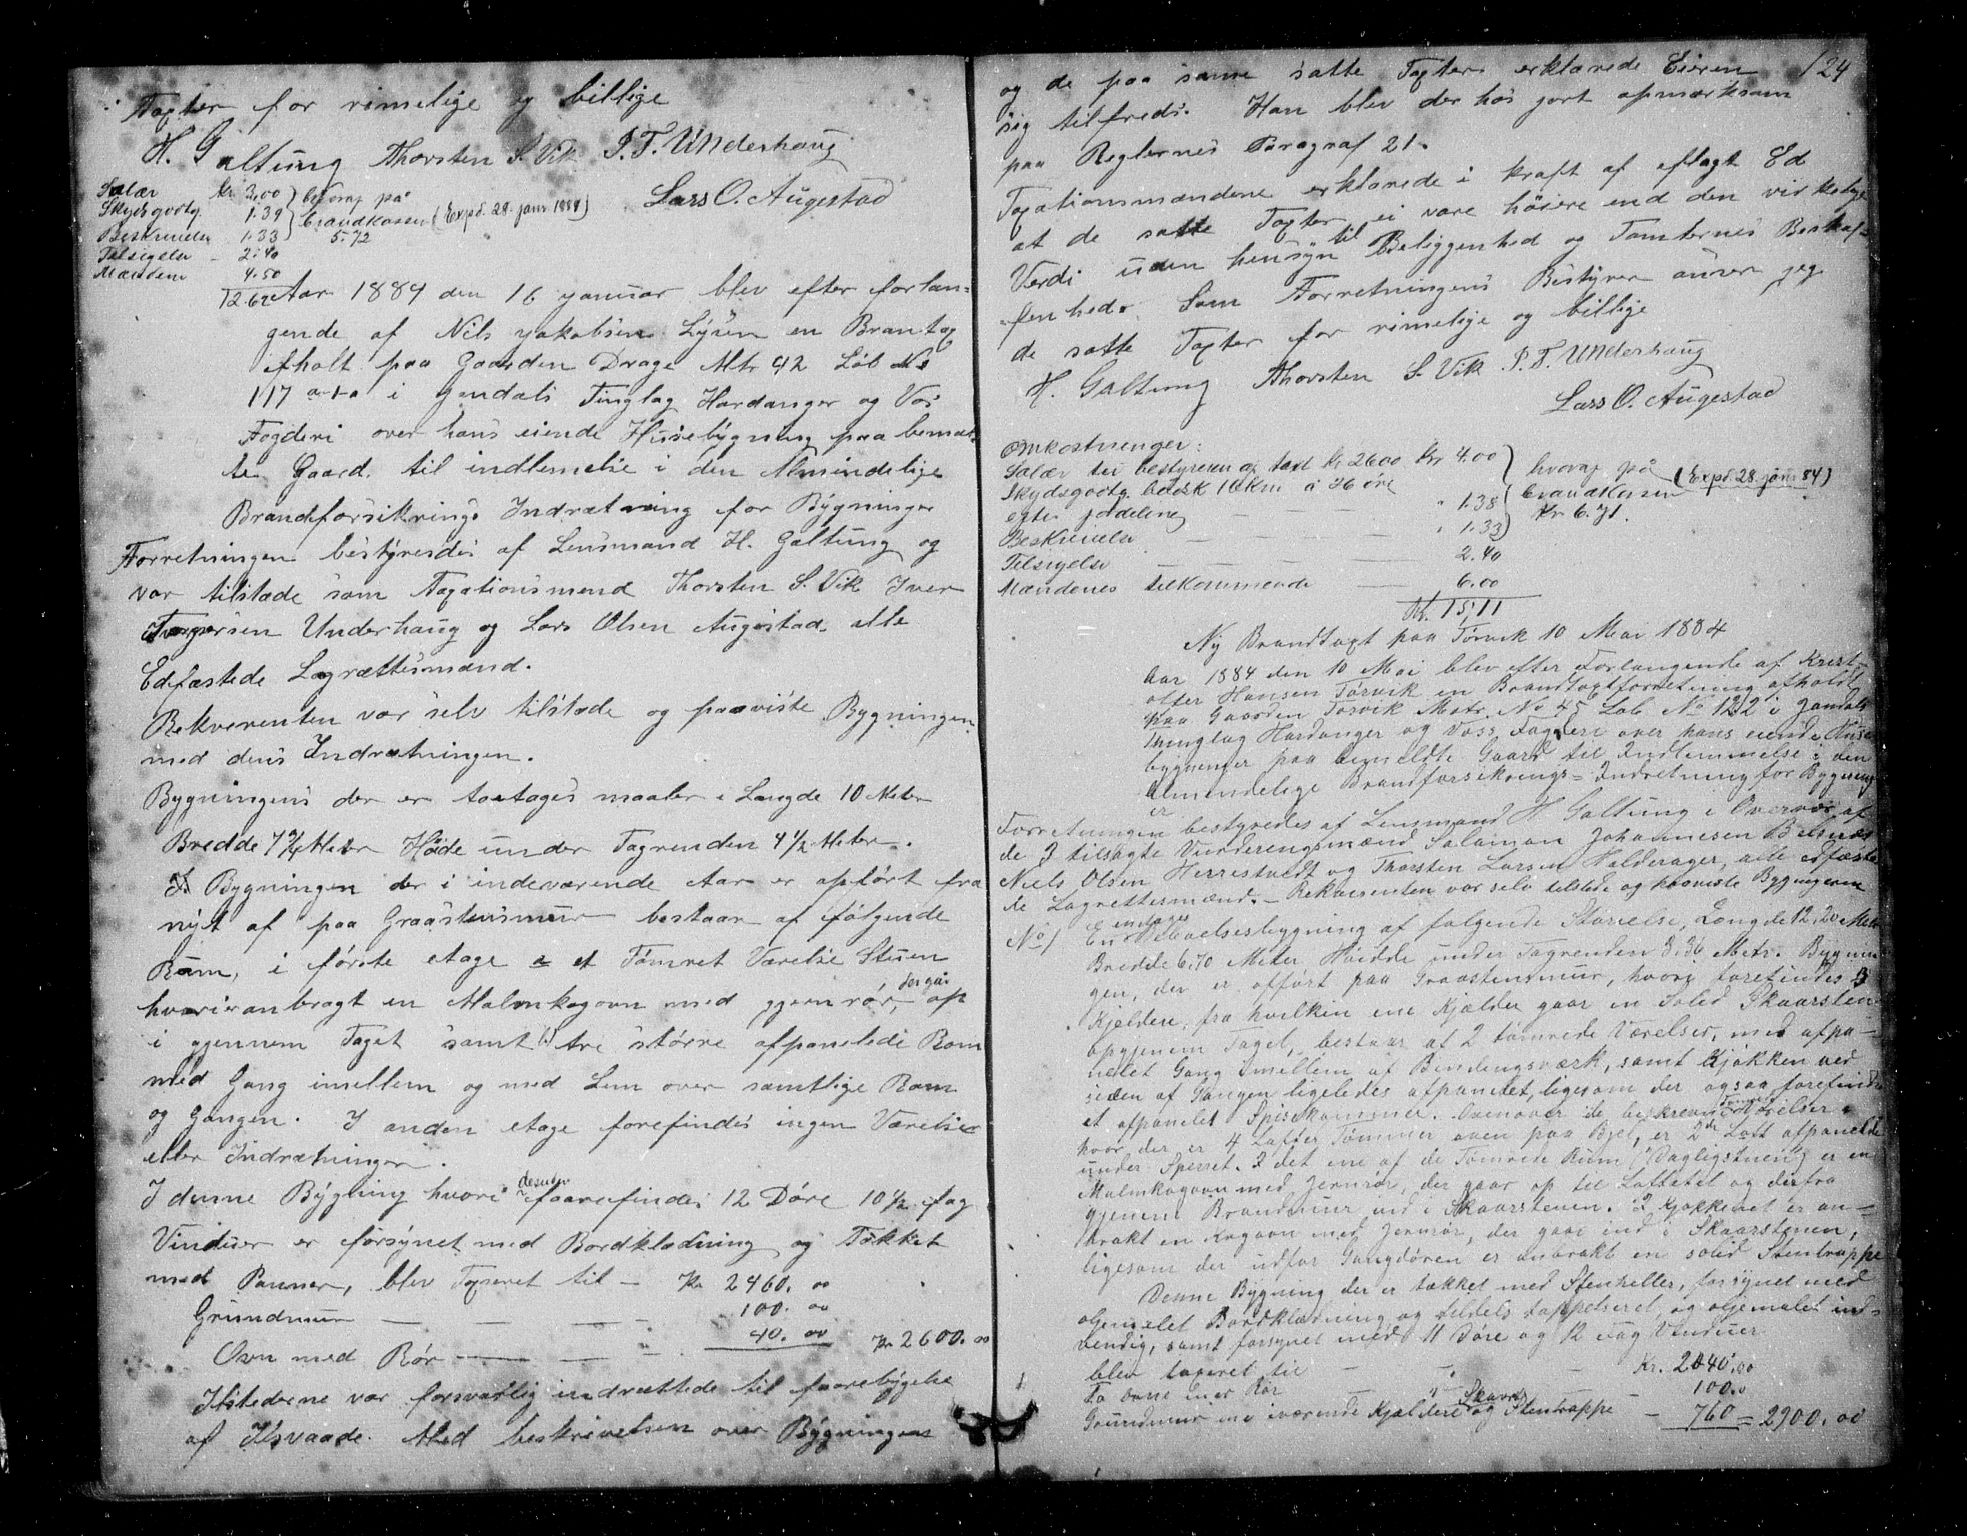 Taxter for rimelige og billige
H. Galtung Thorsten S. Vik I. T. Underhaug
Lars O. Augestad
Salær kr. 3.00 hvoraf på
Skydsgodtg. 1.39 brandkassen (Expd. 28. janr. 1884)
Beskrivelse 1.33 5.72
Tilsigelse - 2.40
Mændene 4.50
12.62
Aar 1884 den 16 januar blev efter forlan-
gende af Nils Jakobsen Lysen en Brantax
afholt paa Gaarden Drage Mtr 42 Løb No
117 a i Jondals Tinglag Hardanger og Vos
Fogderi over hans eiende Husebygning paa bemæl
te Gaard til indlemelse i den Almindelige
Brandforsikrings Indrætning for Bygninger
Forretningen bestyredes af Lensmand H. Galtung og
var tilstæde som Taxationsmend Thorsten S. Vik Iver
Underhaug og Lars Olsen Augestad alle
Edfæstede Lagrættesmænd.
Rekverenten var selv tilstæde og paaviste Bygningen
med dens Indrætningen.
Bygningens der er toetages maaler i Længde 10 Meter
Bredde 7 Meter Høide under Tagrenden 4 1/2 Meter.
Bygningen der i indeværende Aar er opført fra
nyt af paa Graastensmur bestaar af følgende
Rum, i første etage et Tømret Værelse Stuen
hvori er anbragt en Malmkagovn med gjernrør, der går op
i gjennem Taget samt tre større afpanelede Rom
med Gang imellem og med Lem over samtlige Rom
og Gangen. I anden etage forefindes ingen Værelse
eller Indrætninger.
I denne Bygning hvori desuden faarefindes 12 Døre 10 1/2 fag
Vinduer er forsynet med Bordklædning og Tækket
med Panner, blev Taxeret til - Kr 2460.00
Grundmur — — — " 100.00
Ovn med Rør — — " 40.00 Kr 2600.00
Ilstederne var forsvarlig indrættede til faarebygelse
af Ilsvaade. Med beskrivelsen over Bygningen
124
og de paa samme satte Taxter erklærede Eieren
sig tilfreds. Han blev der hos gjort opmærksom
paa Reglernes Paragraf 21.
Taxationsmændene erklærede i kraft af eflagt Ed
at de satte Taxter ei vare høiere end den virkelige
Verdi uden hensyn til Beliggenhed og Tomternes Beskaf-
fenhed. Som Forretningens Bestyrer anser jeg
de satte Taxter for rimelige og billige
H. Galtung Thorsten S. Vik I. T. Underhaug
Lars O. Augestad
Omkostninger:
Salær til bestyreren af taxt kr 2600 Kr 4.00 hvoraf på
Skydsgodtg. baads 16 km à 36 øre (Expd. 28. janr. 84)
efter fordeling — — — " 1.38 brandkassen
Beskrivelse — — — " 1.33 Kr 6.71.
Tilsigelse — — — 2.40
Mændenes tilkommende — 6.00
Kr. 15.11
Ny Brandtaxt paa Tørvik 10 Mai 1884
Aar 1884 den 10 Mai blev efter Forlangende af Krist-
offer Hansen Tørvik en Brandtaxtforretning afholdt
paa Gaarden Torvik Matr. No 45 Løb No 122 i Jondals
Thinglag Hardanger og Voss Fogderi over hans eiende Huse
bygninger paa bemeldte Gaard til Indlemmelse i den
almindelige Brandforsikrings-Indretning for Bygning
er
Forretningen bestyredes af Lensmand H Galtung i Overvær af
de 3 tilsagte Vurderingsmænd Salamon Johannesen Belsnæs
Niels Olsen Herrestvedt og Thorsten Larsen Halderager, alle edfæste
de Lagrettesmænd. - Rekvirenten var selv tilstede og paaviste Bygningerne
No 1 En enetages Vaaelsesbygning af følgende Størrelse, Længde 12,20 Meter
Bredde 6.70 Meter Høidde under Tagrenden 3.36 Meter. Bygnin
gen, der er opført paa Graastenmuur, hvori forefindes 3
Kjældere, fra hvilken ene Kjælder gaar en Solid Skaarsten
opgjenem Taget, bestaar af 2 tømrede Værelser, med afpa-
nelet Gang imellem af Bindingsværk, samt Kjøkken ved
siden af Gangen ligeledes afpanelet, ligesom der ogsaa forefindes
et afpanelet Spisekammer. Ovenover de beskrevne Tømrede Værelser
hvor der er 4 Lafter Tømmer oven paa Bjel, er 2de Loft afpanelede
under Sperret. I det ene af de Tømrede Rum (Dagligstuen) er en
Malmkagovn med Jernrør, der gaar op til Loftetet og derfra
gjenem Brandmur ind i Skaarstenen. I Kjøkkenet er an-
brakt en Kogovn med Jernrør, der gaar ind i Skaarstenen,
ligesom der udfor Gangdøren er anbrakt en solid Stentrappe
Denne Bygning der er tækket med Stenheller, forsynet med
oljemalet Bordklædning og tildels tappetseret, og oljemalet ind-
vendig, samt forsynet med 11 Døre og 12 Fag Vinduer
blev taxeret til — — — Kr. 2040.00
To Ovne Rør — " — 100.00
Grundmur med iværende Kjældere Skaarsten og Stentrappe - 760 = 2900.00